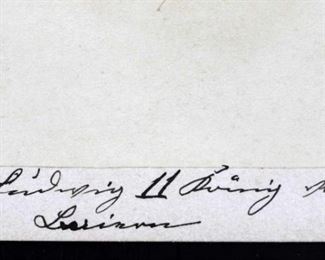 Ludwig II König v
Baiern